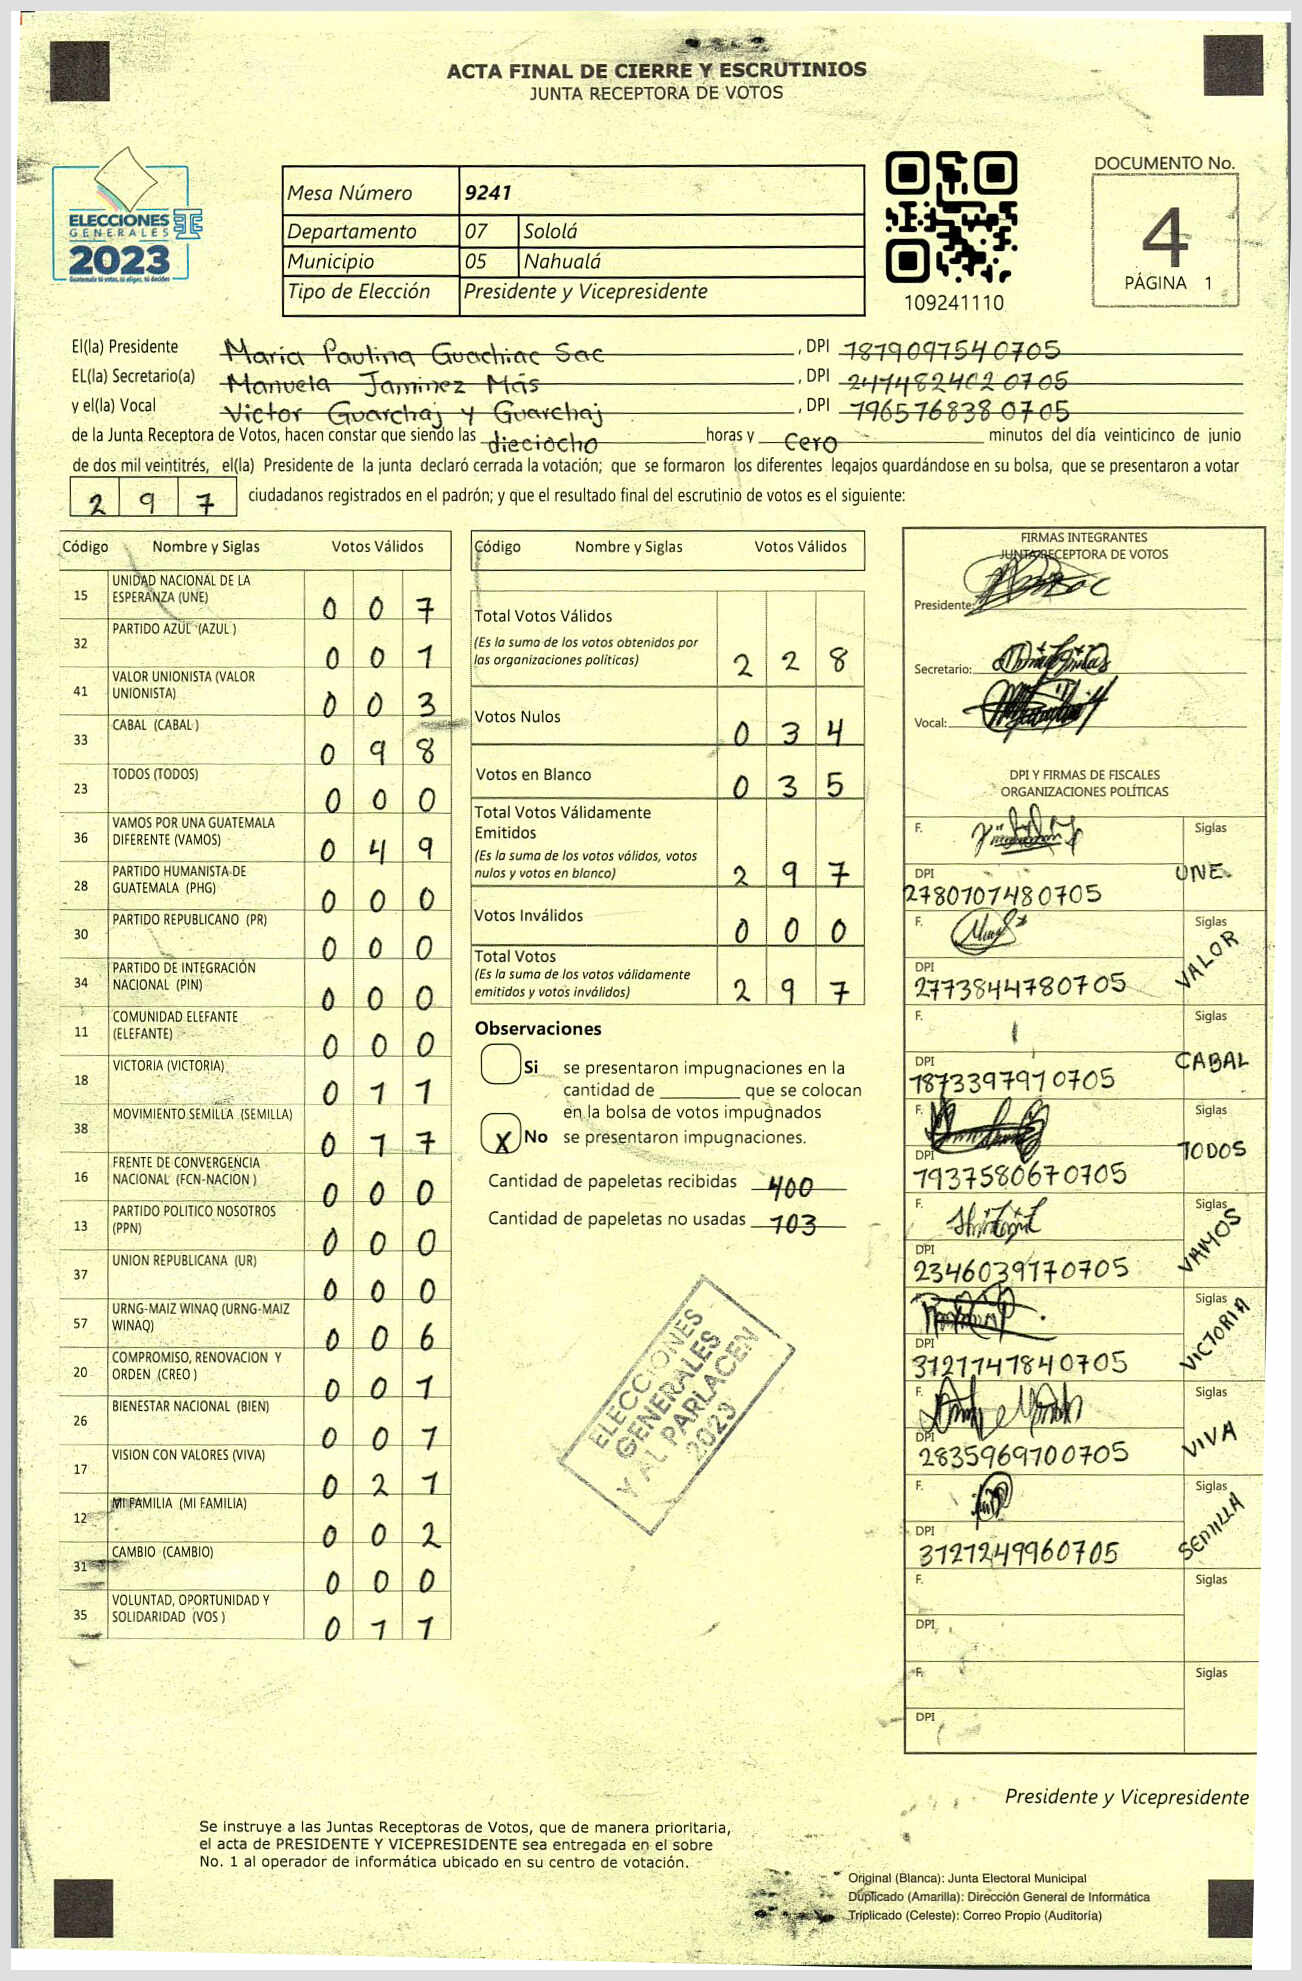 ACTA FINAL DE CIERRE Y ESCRUTINIOS
JUNTA RECEPTORA DE VOTOS
ELECCIONES
GENERALES
2023
Guatemala tú votas, tú eliges, tú decides
Mesa Número 9241
Departamento 07 Sololá
Municipio 05 Nahualá
Tipo de Elección Presidente y Vicepresidente
109241110
DOCUMENTO No.
4
PÁGINA 1
El(la) Presidente María Paulina Guachiac Sac , DPI 1879097540705
EL(la) Secretario(a) Manuela Jaminez Más , DPI 2474824020705
y el(la) Vocal Victor Guarchaj y Guarchaj , DPI 7965768380705
de la Junta Receptora de Votos, hacen constar que siendo las dieciocho horas y cero minutos del día veinticinco de junio
de dos mil veintitrés, el(la) Presidente de la junta declaró cerrada la votación; que se formaron los diferentes legajos guardándose en su bolsa, que se presentaron a votar
2 9 7 ciudadanos registrados en el padrón; y que el resultado final del escrutinio de votos es el siguiente:
Código Nombre y Siglas Votos Válidos
15 UNIDAD NACIONAL DE LA
ESPERANZA (UNE) 0 0 7
32 PARTIDO AZUL (AZUL ) 0 0 1
41 VALOR UNIONISTA (VALOR
UNIONISTA) 0 0 3
33 CABAL (CABAL ) 0 9 8
23 TODOS (TODOS) 0 0 0
36 VAMOS POR UNA GUATEMALA
DIFERENTE (VAMOS) 0 4 9
28 PARTIDO HUMANISTA DE
GUATEMALA (PHG) 0 0 0
30 PARTIDO REPUBLICANO (PR) 0 0 0
34 PARTIDO DE INTEGRACIÓN
NACIONAL (PIN) 0 0 0
11 COMUNIDAD ELEFANTE
(ELEFANTE) 0 0 0
18 VICTORIA (VICTORIA) 0 1 1
38 MOVIMIENTO SEMILLA (SEMILLA) 0 1 7
16 FRENTE DE CONVERGENCIA
NACIONAL (FCN-NACION ) 0 0 0
13 PARTIDO POLITICO NOSOTROS
(PPN) 0 0 0
37 UNION REPUBLICANA (UR) 0 0 0
57 URNG-MAIZ WINAQ (URNG-MAIZ
WINAQ) 0 0 6
20 COMPROMISO, RENOVACION Y
ORDEN (CREO ) 0 0 1
26 BIENESTAR NACIONAL (BIEN) 0 0 1
17 VISION CON VALORES (VIVA) 0 2 1
12 MI FAMILIA (MI FAMILIA) 0 0 2
31 CAMBIO (CAMBIO) 0 0 0
35 VOLUNTAD, OPORTUNIDAD Y
SOLIDARIDAD (VOS ) 0 1 1
Código Nombre y Siglas Votos Válidos
Total Votos Válidos
(Es la suma de los votos obtenidos por
las organizaciones políticas) 2 2 8
Votos Nulos 0 3 4
Votos en Blanco 0 3 5
Total Votos Válidamente
Emitidos
(Es la suma de los votos válidos, votos
nulos y votos en blanco) 2 9 7
Votos Inválidos 0 0 0
Total Votos
(Es la suma de los votos válidamente
emitidos y votos inválidos) 2 9 7
Observaciones
Si se presentaron impugnaciones en la
cantidad de ________ que se colocan
en la bolsa de votos impugnados
X No se presentaron impugnaciones.
Cantidad de papeletas recibidas 400
Cantidad de papeletas no usadas 103
ELECCIONES
GENERALES
Y AL PARLACEN
2023
FIRMAS INTEGRANTES
JUNTA RECEPTORA DE VOTOS
Presidente:
Secretario:
Vocal:
DPI Y FIRMAS DE FISCALES
ORGANIZACIONES POLÍTICAS
F. Siglas
UNE
DPI
2780101480705
F. Siglas
VALOR
DPI
2773844780705
F. Siglas
CABAL
DPI
1873397970705
F. Siglas
TODOS
DPI
7937580670705
F. Siglas
VAMOS
DPI
2346039170705
F. Siglas
VICTORIA
DPI
3121141840705
F. Siglas
VIVA
DPI
2835969700705
F. Siglas
SEMILLA
DPI
3121249960705
F. Siglas
DPI
F. Siglas
DPI
Presidente y Vicepresidente
Se instruye a las Juntas Receptoras de Votos, que de manera prioritaria,
el acta de PRESIDENTE Y VICEPRESIDENTE sea entregada en el sobre
No. 1 al operador de informática ubicado en su centro de votación.
Original (Blanca): Junta Electoral Municipal
Duplicado (Amarilla): Dirección General de Informática
Triplicado (Celeste): Correo Propio (Auditoría)